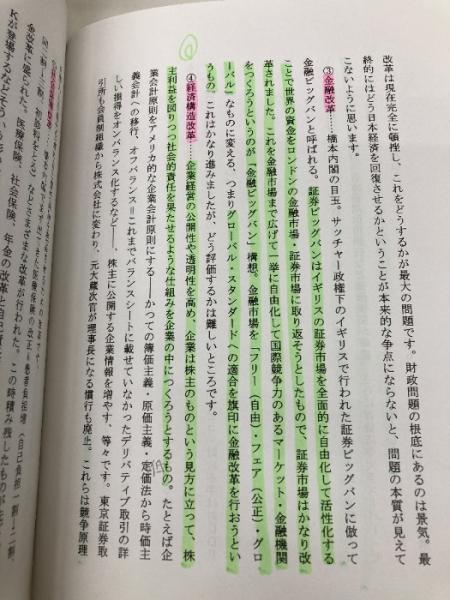 改革は現在完全に頓挫し、これをどうするかが最大の問題です。財政問題の根底にあるのは景気。最
終的にはどう日本経済を回復させるかということが本来的な争点にならないと、問題の本質が見えて
こないように思います。
③金融改革……橋本内閣の目玉。サッチャー政権下のイギリスで行われた証券ビッグバンに倣って
金融ビッグバンと呼ばれる。証券ビッグバンはイギリスの証券市場を全面的に自由化して活性化する
ことで世界の資金をロンドンの金融市場、証券市場に取り返そうとしたもので、証券市場はかなり改
革されました。これを金融市場まで広げて一挙に自由化して国際競争力のあるマーケット・金融機関
をつくろうというのが「金融ビッグバン」構想。金融市場を「フリー（自由）・フェア（公正）・グロ
ーバル」なものに変える、つまりグローバル・スタンダードへの適合を旗印に金融改革を行おうとい
うもの。これはかなり進みましたが、どう評価するかは難しいところです。
④経済構造改革……企業経営の公開性や透明性を高め、企業は株主のものという見方に立って、株
主利益を図りつつ社会的責任を果たせるような仕組みを企業の中につくろうとするもの。たとえば企
業会計原則をアメリカ的な企業会計原則にする――かつての簿価主義・原価主義・定価法から時価主
義会計への移行、オフバランス＝これまでバランスシートに載せていなかったデリバティブ取引の詳
しい損得をオンバランス化するなど――、株主に公開する企業情報を増やす、等々です。東京証券取
引所も会員制組織から株式会社に変わり、元大蔵次官が理事長になる慣行も廃止。これらは競争原理